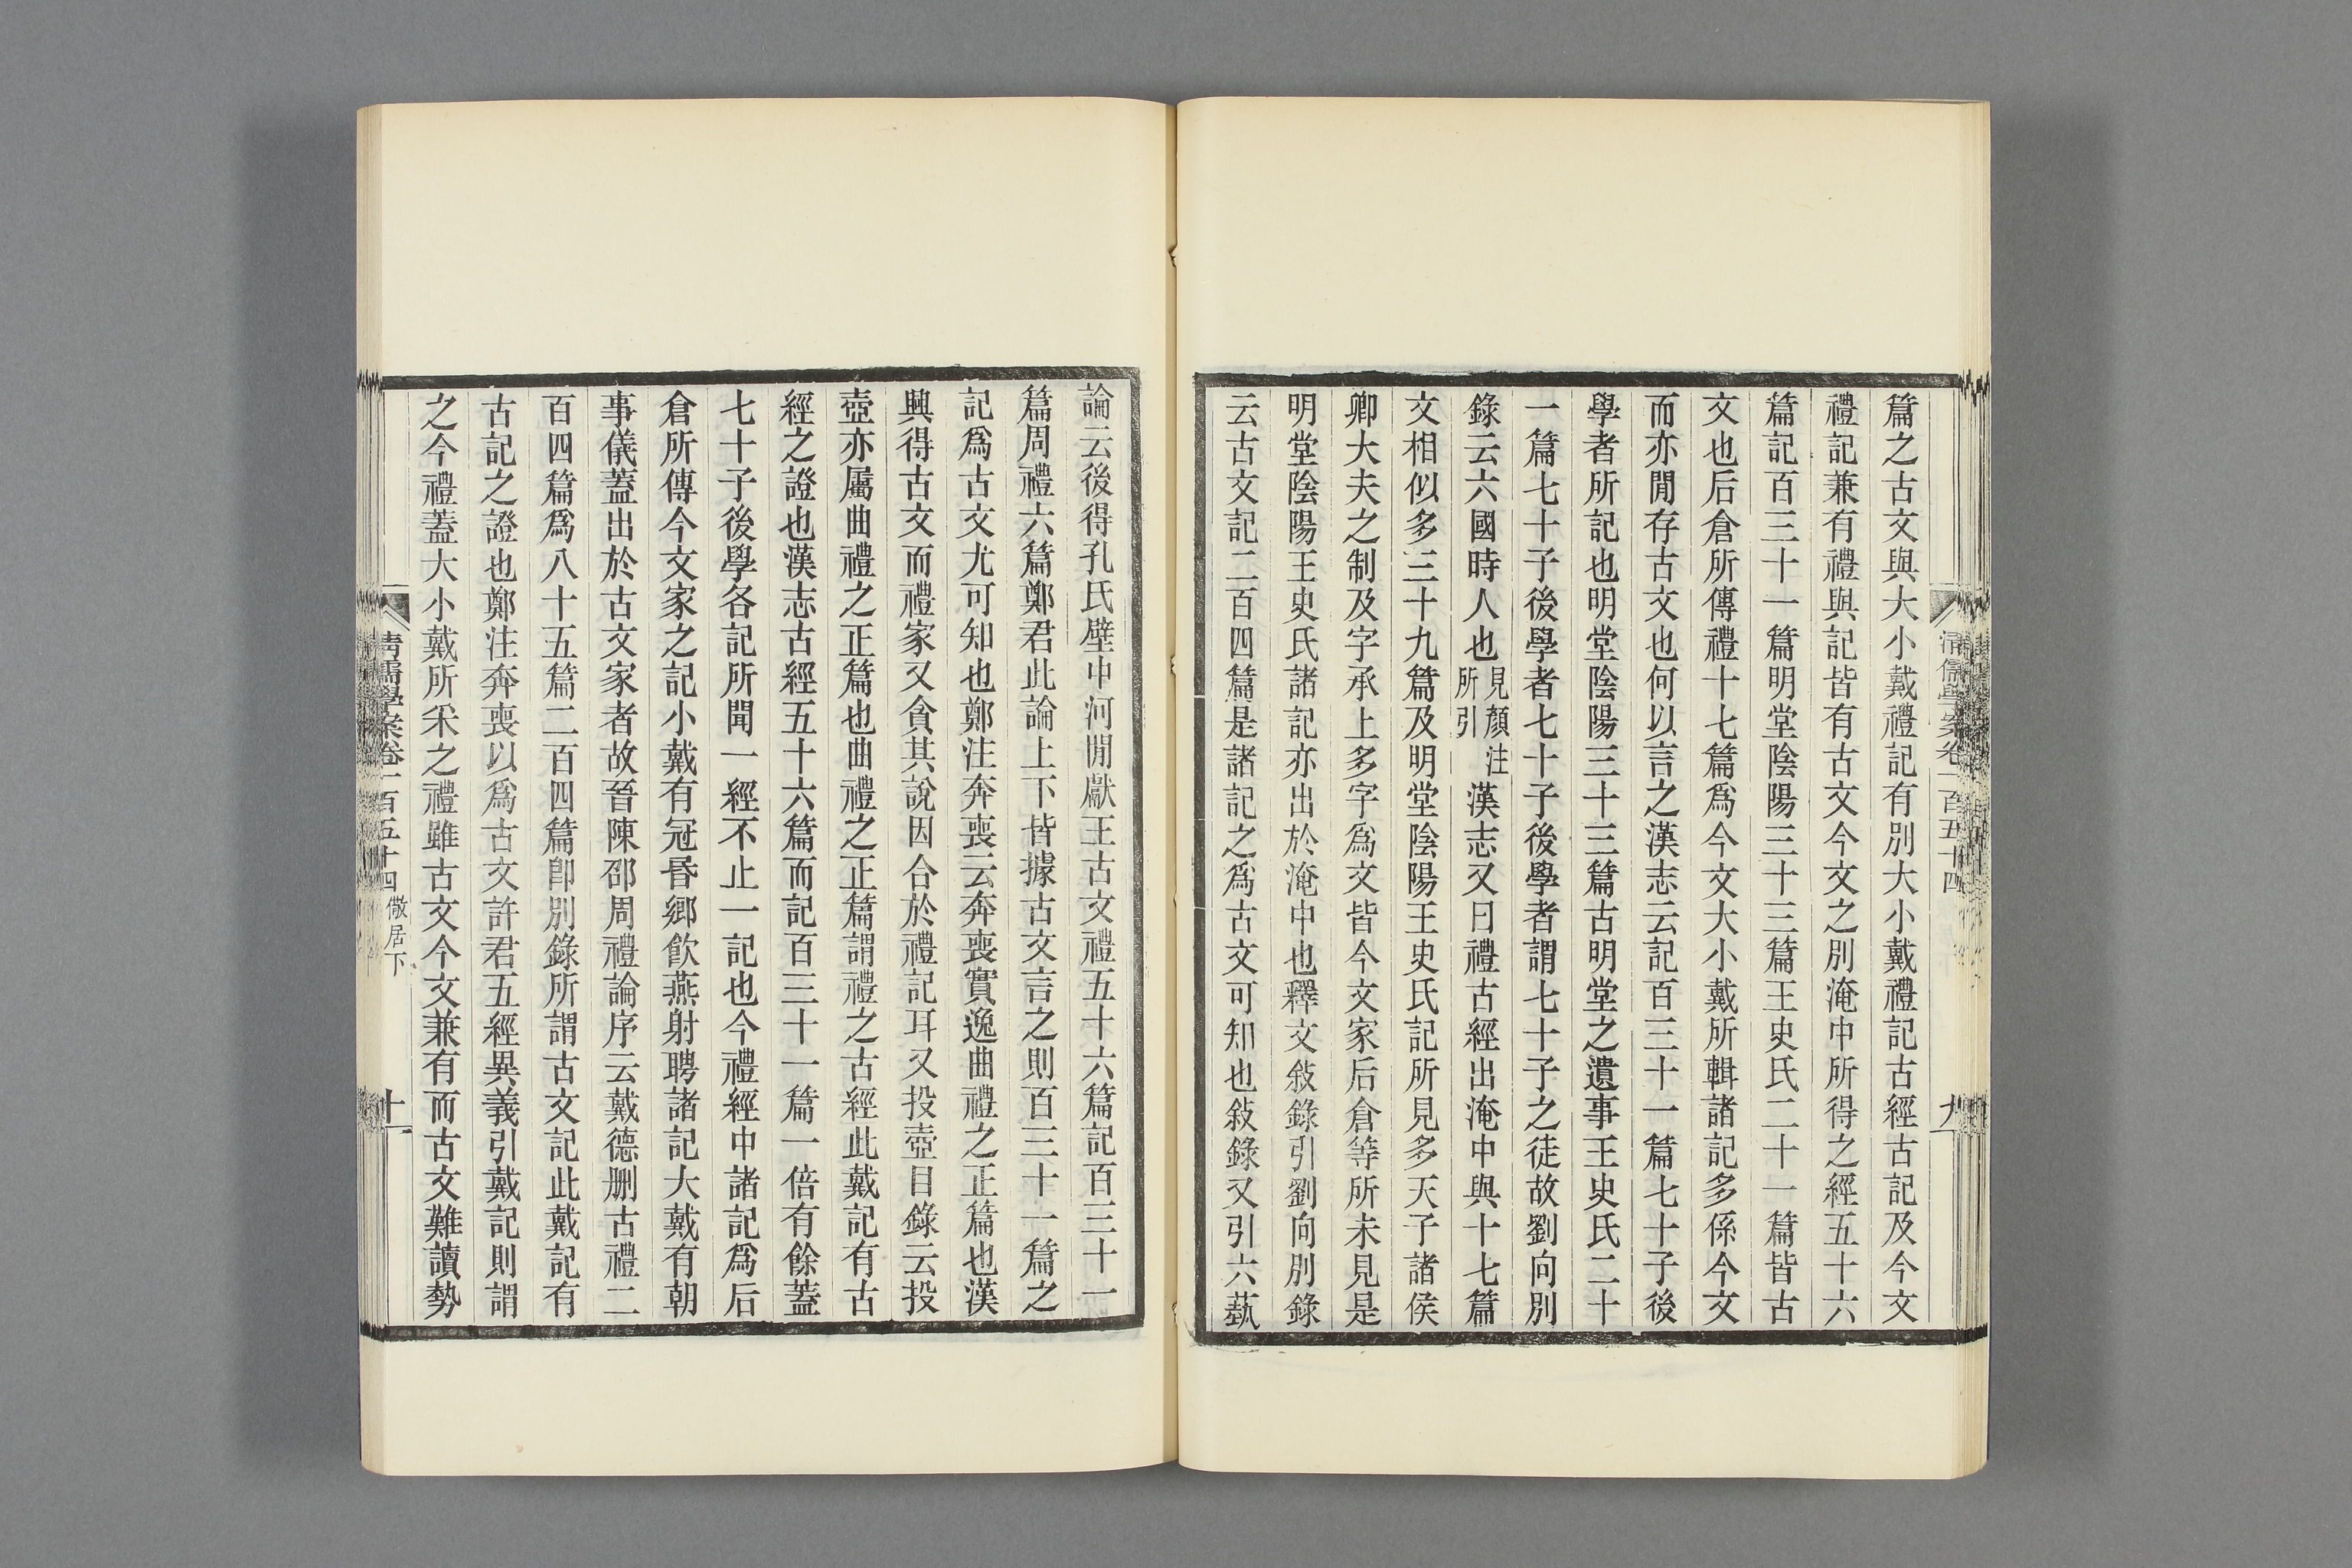 篇之古文與大小戴禮記有別大小戴禮記古經古記及今文
禮記兼有禮與記皆有古文今文之別淹中所得之經五十六
篇記百三十一篇明堂陰陽三十三篇王史氏二十一篇皆古
文也后倉所傳禮十七篇爲今文大小戴所輯諸記多係今文
而亦閒存古文也何以言之漢志云記百三十一篇七十子後
學者所記也明堂陰陽三十三篇古明堂之遺事王史氏二十
一篇七十子後學者七十子後學者謂七十子之徒故劉向別
錄云六國時人也見顏注所引漢志又曰禮古經出淹中與十七篇
文相似多三十九篇及明堂陰陽王史氏記所見多天子諸侯
卿大夫之制及字承上多字爲文皆今文家后倉等所未見是
明堂陰陽王史氏諸記亦出於淹中也釋文敍錄引劉向別錄
云古文記二百四篇是諸記之爲古文可知也敍錄又引六藝
清儒學案卷一百五十四
九
論云後得孔氏壁中河閒獻王古文禮五十六篇記百三十一
篇周禮六篇鄭君此論上下皆據古文言之則百三十一篇之
記爲古文尤可知也鄭注奔喪云奔喪實逸曲禮之正篇也漢
興得古文而禮家又貪其說因合於禮記耳又投壺目錄云投
壺亦屬曲禮之正篇也曲禮之正篇謂禮之古經此戴記有古
經之證也漢志古經五十六篇而記百三十一篇一倍有餘蓋
七十子後學各記所聞一經不止一記也今禮經中諸記爲后
倉所傳今文家之記小戴有冠昏鄉飮燕射聘諸記大戴有朝
事儀蓋出於古文家者故晉陳邵周禮論序云戴德刪古禮二
百四篇爲八十五篇二百四篇卽別錄所謂古文記此戴記有
古記之證也鄭注奔喪以爲古文許君五經異義引戴記則謂
之今禮蓋大小戴所釆之禮雖古文今文兼有而古文難讀勢
清儒學案卷一百五十四 儆居下
十